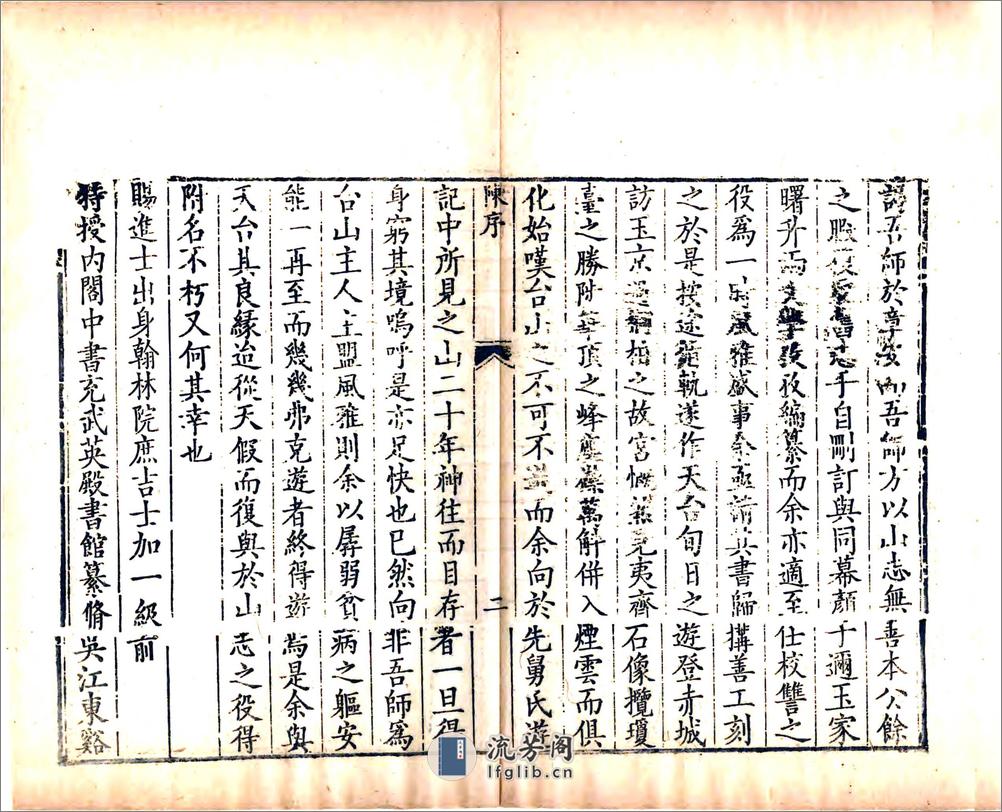 謁吾師於章安而吾師方以山志無善本公餘
之暇手自刪訂與同幕顏子邇玉家
曙升兩文學孜孜編纂而余亦適至仕校讐之
役為一時風雅盛事余亟請其書歸搆善工刻
之於是按途循軌遂作天台旬日之遊登赤城
訪玉京過桐栢之故宮慨然見夷齊石像攬瓊
臺之勝陟華頂之峰塵襟萬斛併入煙雲而俱
化始嘆台山之不可不遊而余向於先舅氏遊
陳序 二
記中所見之山二十年神往而目存者一旦得
身窮其境嗚呼是亦足快也已然向非吾師為
台山主人主盟風雅則余以孱弱貧病之軀安
能一再至而幾幾弗克遊者終得遊焉是余與
天台其良緣迨從天假而復與於山志之役得
附名不朽又何其幸也
賜進士出身翰林院庶吉士加一級前
特授內閣中書充武英殿書館纂脩吳江東谿
流芳阁
lfglib.cn